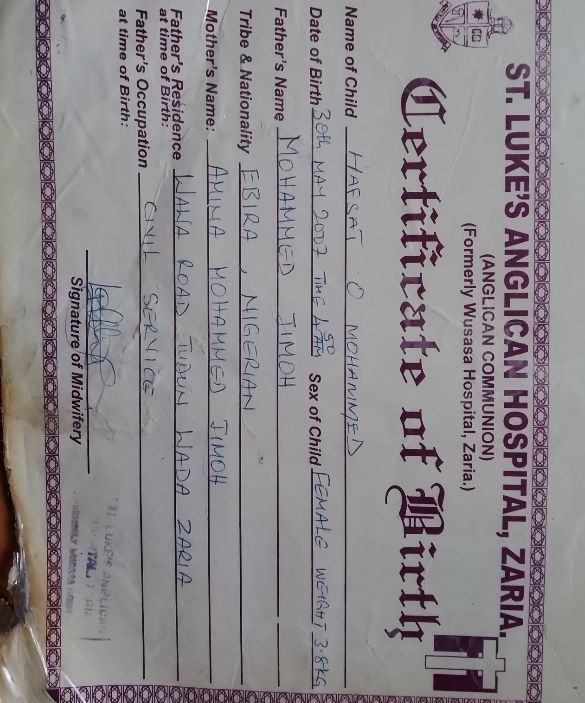 ST. LUKE'S ANGLICAN HOSPITAL, ZARIA.
(ANGLICAN COMMUNION)
(Formerly Wusasa Hospital, Zaria.)
Certificate of Birth
Name of Child HAFSAT O MOHAMMED
Date of Birth 30th MAY 2007 TIME 4 AM Sex of Child FEMALE WEIGHT 3.8KG
Father's Name MOHAMMED JIMOH
Tribe & Nationality EBIRA, NIGERIAN
Mother's Name: AMINA MOHAMMED JIMOH
Father's Residence at time of Birth: WANA ROAD TUDUN WADA ZARIA
Father's Occupation at time of Birth: CIVIL SERVICE
Signature of Midwifery
LUKE'S ANGLICAN